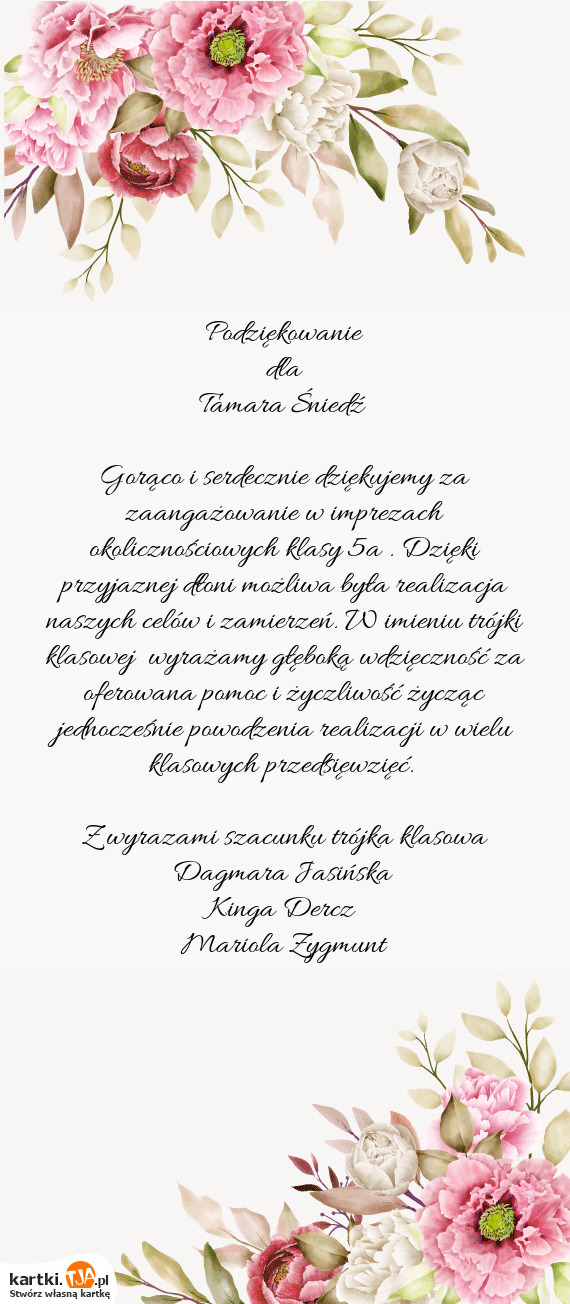 Podziękowanie
dla
Tamara Śniedź
Gorąco i serdecznie dziękujemy za
zaangażowanie w imprezach
okolicznościowych klasy 5a . Dzięki
przyjaznej dłoni możliwa była realizacja
naszych celów i zamierzeń. W imieniu trójki
klasowej wyrażamy głęboką wdzięczność za
oferowana pomoc i życzliwość życząc
jednocześnie powodzenia realizacji w wielu
klasowych przedsięwzięć.
Z wyrazami szacunku trójka klasowa
Dagmara Jasińska
Kinga Dercz
Mariola Zygmunt
kartki.TJA.pl
Stwórz własną kartkę